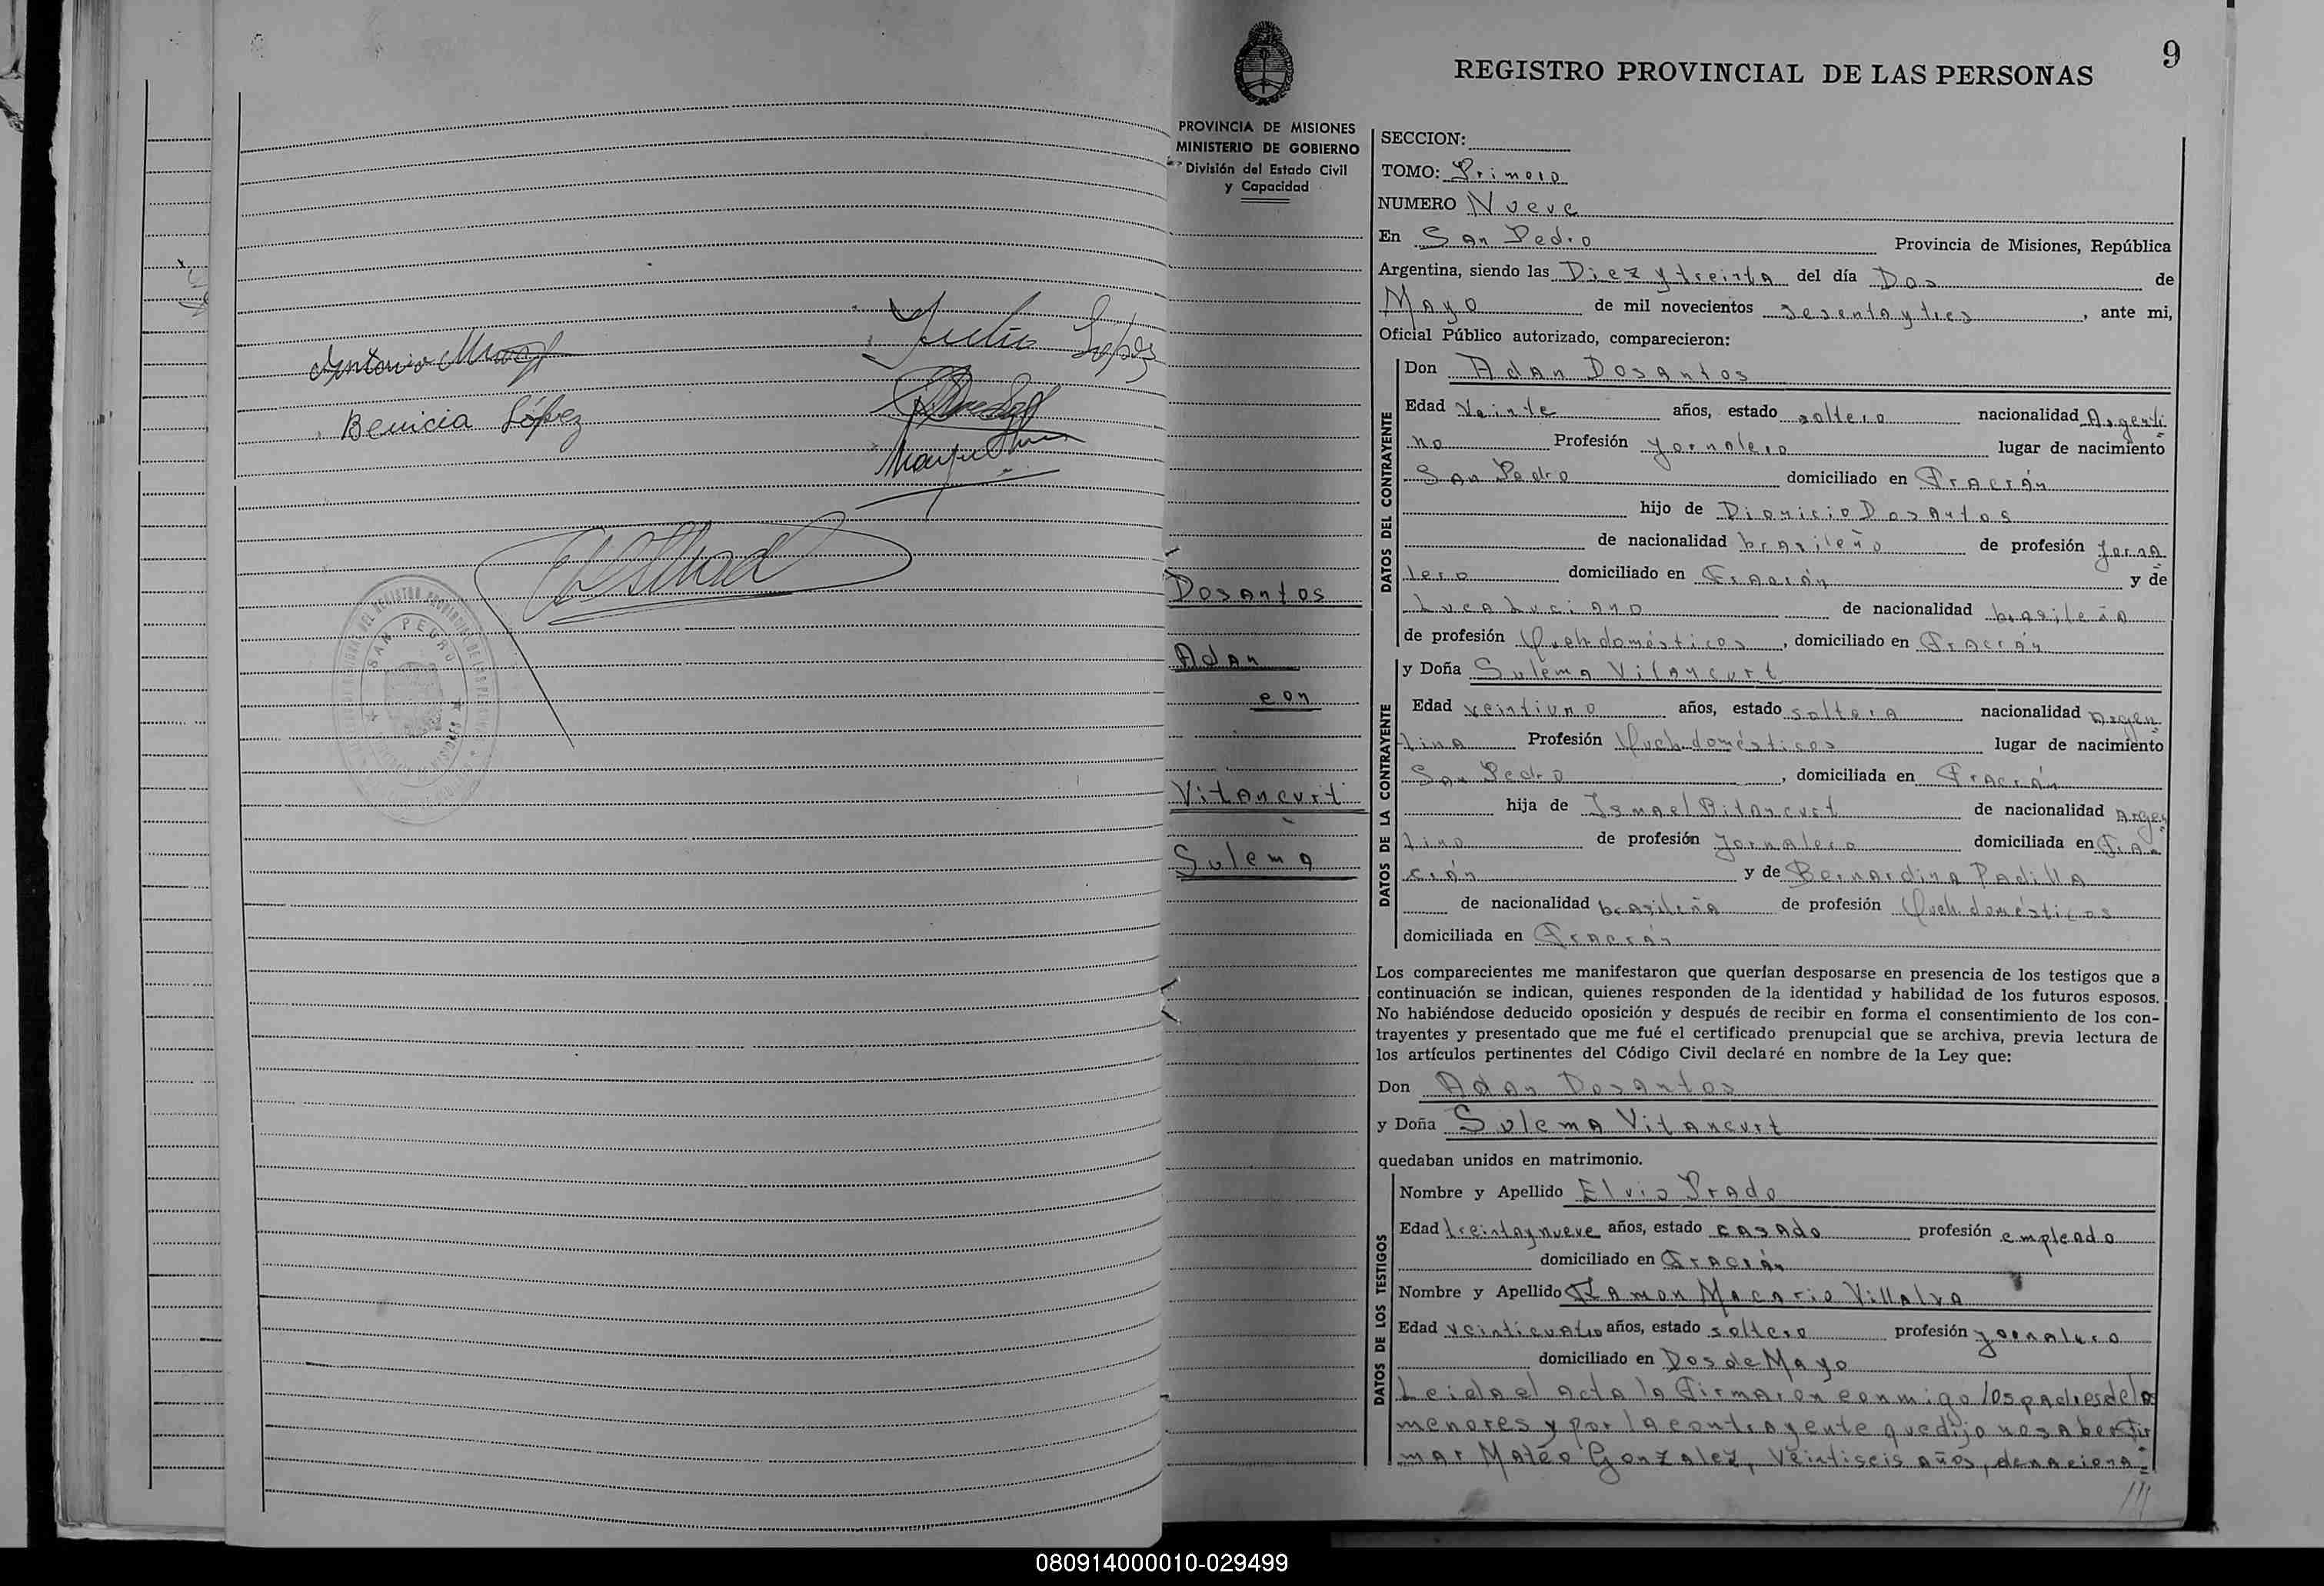 Julio López
Antonio
Benicia López
SAN PEDRO
9
REGISTRO PROVINCIAL DE LAS PERSONAS
PROVINCIA DE MISIONES
MINISTERIO DE GOBIERNO
División del Estado Civil
y Capacidad
Dosantos
Adan
con
Vitancurt
Sulema
SECCION:
TOMO: Primero
NUMERO Nueve
En San Pedro Provincia de Misiones, República
Argentina, siendo las Diez y treinta del día Dos de
Mayo de mil novecientos sesenta y tres, ante mi,
Oficial Público autorizado, comparecieron:
DATOS DEL CONTRAYENTE
Don Adan Dosantos
Edad Veinte años, estado soltero nacionalidad Argenti=
no Profesión Jornalero lugar de nacimiento
San Pedro domiciliado en Fracrán
hijo de Dionicio Dosantos
de nacionalidad brasileño de profesión Jorna
lero domiciliado en Fracrán y de
Luca Luciano de nacionalidad brasileña
de profesión Queh. domésticos, domiciliado en Fracrán
DATOS DE LA CONTRAYENTE
y Doña Sulema Vitancurt
Edad veintiuno años, estado soltera nacionalidad Argen=
tina Profesión Queh. domésticos lugar de nacimiento
San Pedro, domiciliada en Fracrán
hija de Ismael Bitancurt de nacionalidad Argen=
tino de profesión Jornalero domiciliada en Fra=
crán y de Bernardina Padilla
de nacionalidad brasileña de profesión Queh. domésticos
domiciliada en Fracrán
Los comparecientes me manifestaron que querían desposarse en presencia de los testigos que a
continuación se indican, quienes responden de la identidad y habilidad de los futuros esposos.
No habiéndose deducido oposición y después de recibir en forma el consentimiento de los con-
trayentes y presentado que me fué el certificado prenupcial que se archiva, previa lectura de
los artículos pertinentes del Código Civil declaré en nombre de la Ley que:
Don Adan Dosantos
y Doña Sulema Vitancurt
quedaban unidos en matrimonio.
DATOS DE LOS TESTIGOS
Nombre y Apellido Elvio Prado
Edad treinta y nueve años, estado casado profesión empleado
domiciliado en Fracrán
Nombre y Apellido Ramon Macario Villalva
Edad veinticuatro años, estado soltero profesión jornalero
domiciliado en Dos de Mayo
Leida el acta la firmaron conmigo los padres de los
menores y por la contrayente que dijo no saber fir=
mar Matéo Gonzalez, Veintiseis años, de naciona=
///
080914000010-029499